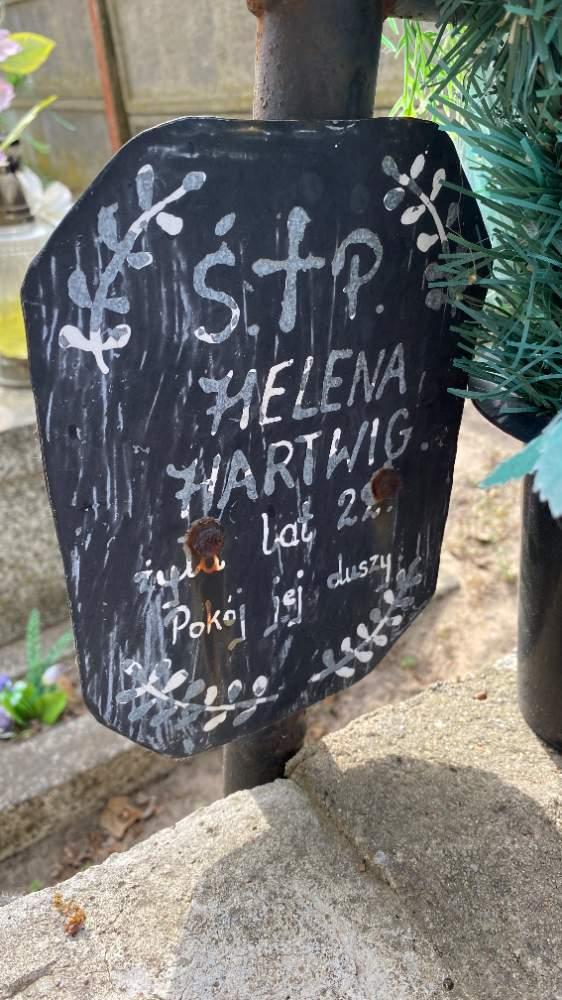 Ś.†P.
HELENA
HARTWIG
żyła lat
Pokój jej duszy